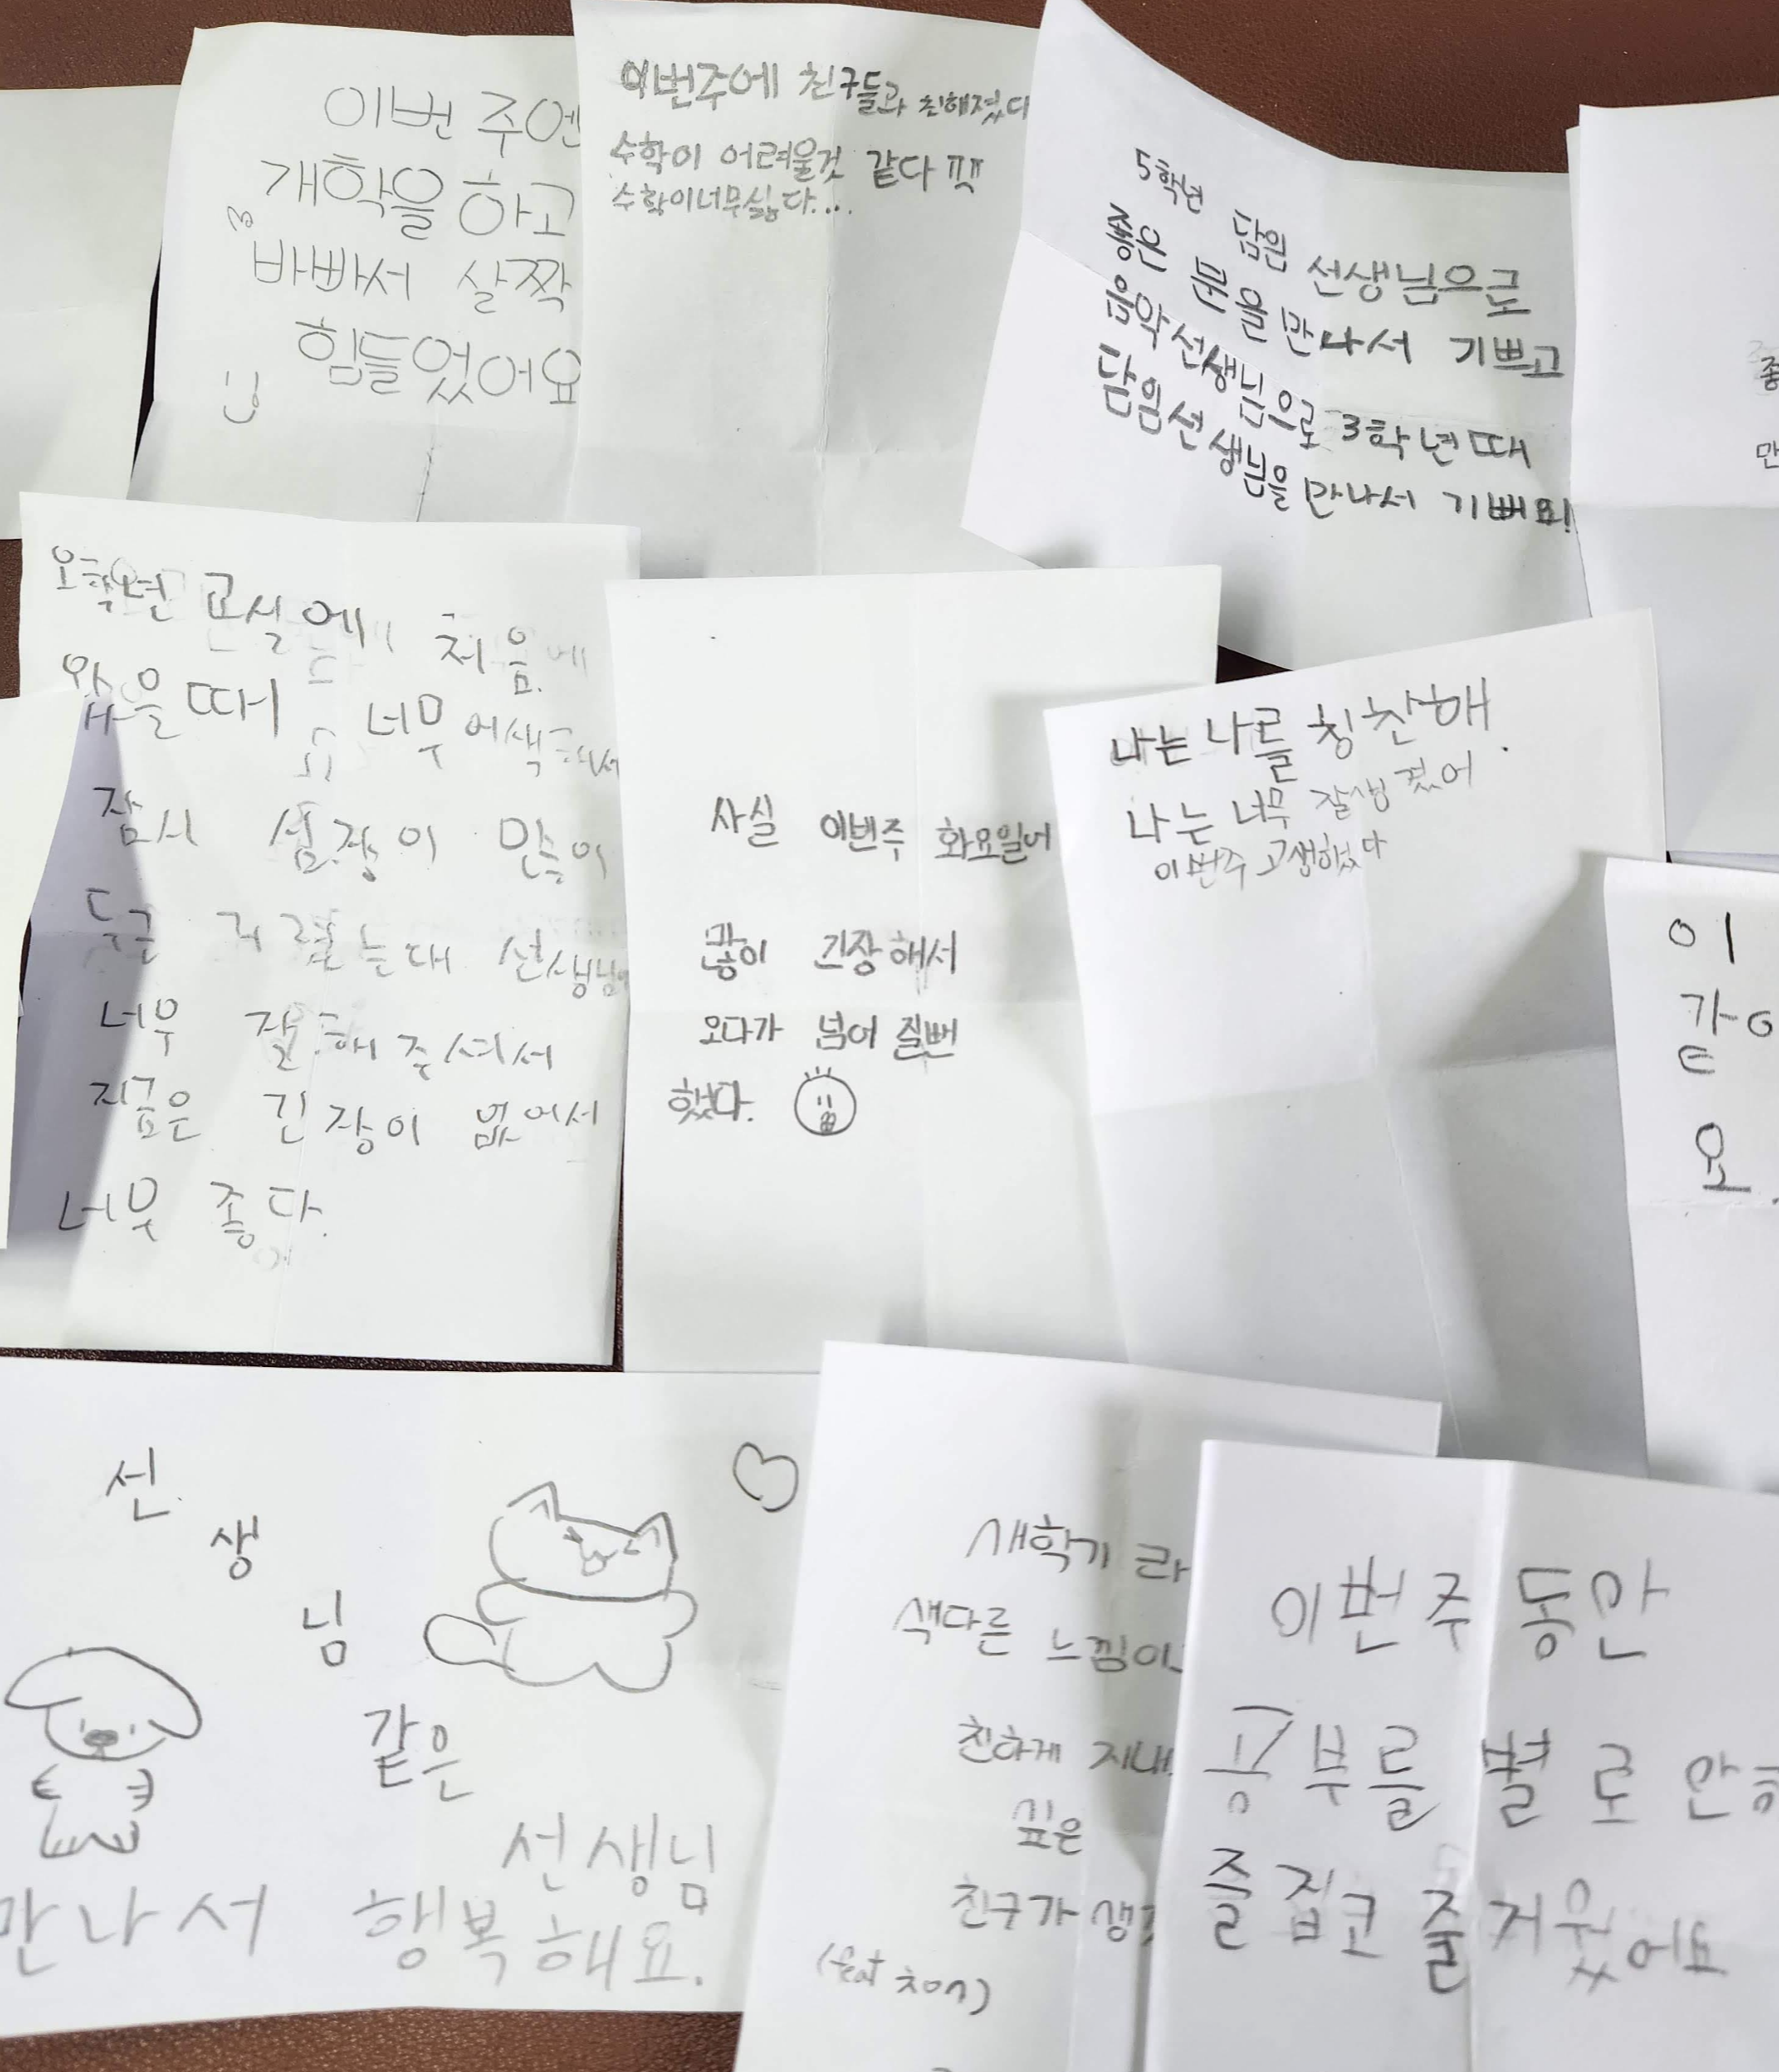 이번 주엔
개학을 하고
바빠서 살짝
힘들었어요
이번주에 친구들과 친해졌다
수학이 어려울것 같다 ㅠㅠ
수학이너무싫다....
5학년 담임 선생님으로
좋은 분을 만나서 기쁘고
음악선생님으로 3학년때
담임선생님을 만나서 기뻐요!
좋
만
오학년 교실에 처음
왔을때 너무 어색
잠시 성장이 많이
두근 거렸는대 선생님
너무 잘해주셔서
지금은 긴장이 없어서
너무 좋다.
사실 이번주 화요일에
많이 긴장해서
오다가 넘어질뻔
했다.
나는 나를 칭찬해.
나는 너무 잘생겼어
이번주 고생했다
이
같아
요.
선
생
님
같은
선생님
만나서 행복해요.
새학기 라
색다른 느낌이
친하게 지내
싶은
친구가 생
이번주 동안
공부를 별로 안
즐겁고 즐거웠어요